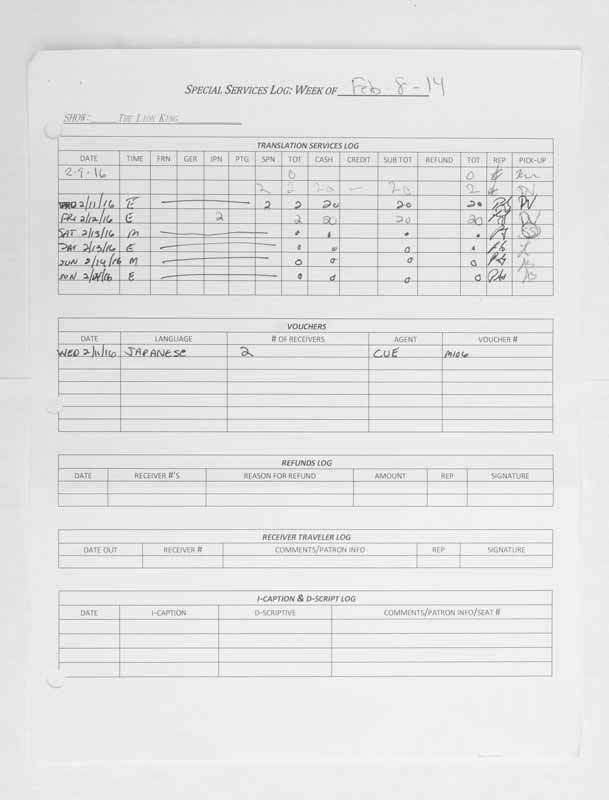 SPECIAL SERVICES LOG: WEEK OF Feb 8-14
SHOW: THE LION KING
TRANSLATION SERVICES LOG
DATE TIME FRN GER JPN PTG SPN TOT CASH CREDIT SUB TOT REFUND TOT REP PICK-UP
2-9-16 0 0
2 2 20 — 20 2
2/11/16 E 2 2 20 20 20 DV
FRI 2/12/16 E 2 2 20 20 20 DV
SAT 2/13/16 M 0 0 0 0
SAT 2/13/16 E 0 0 0 0
SUN 2/14/16 M 0 0 0 0
SUN 2/14/16 E 0 0 0 0
VOUCHERS
DATE LANGUAGE # OF RECEIVERS AGENT VOUCHER #
WED 2/11/16 JAPANESE 2 CUE M106
REFUNDS LOG
DATE RECEIVER #'S REASON FOR REFUND AMOUNT REP SIGNATURE
RECEIVER TRAVELER LOG
DATE OUT RECEIVER # COMMENTS/PATRON INFO REP SIGNATURE
I-CAPTION & D-SCRIPT LOG
DATE I-CAPTION D-SCRIPTIVE COMMENTS/PATRON INFO/SEAT #